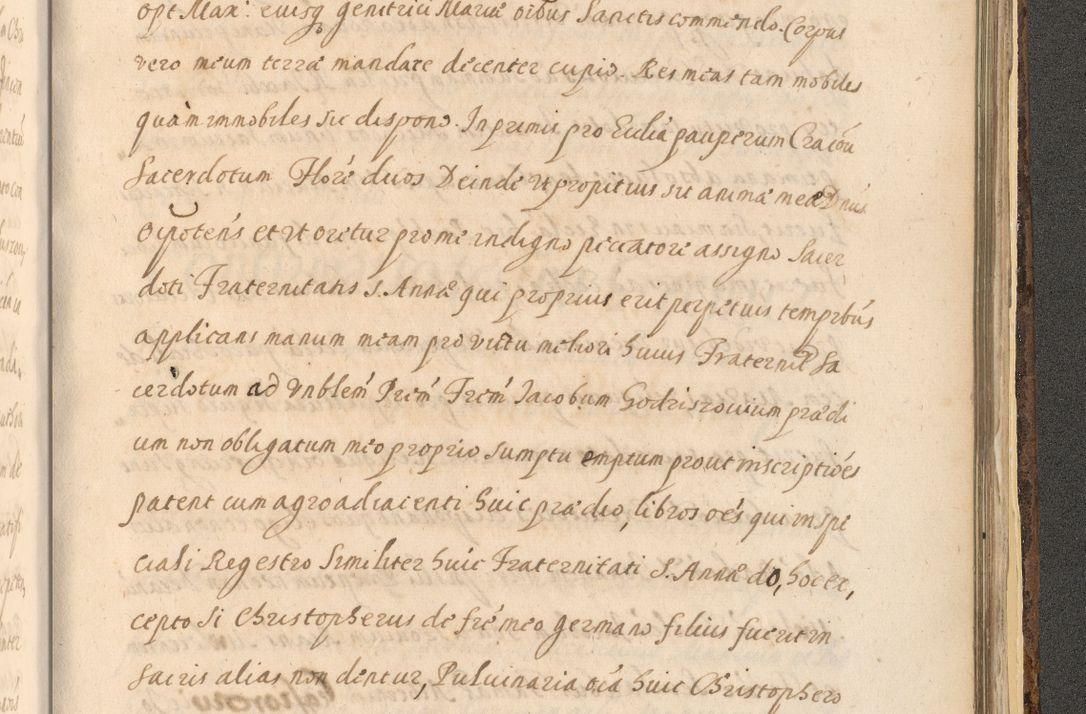 opt Max: eiusq genitrici Mariæ oibus Sanctis commendo. Corpus
vero meum terræ mandare decenter cupio. Res meas tam mobiles
quàm immobiles sic dispono. In primis pro Ecclia pauperum Cracou
Sacerdotum Flore duos Deinde Ut propitius sit animæ meæ Dnus
Oipotens et Ut oretur pro me indigno peccatore assigno Sacer
doti Fraternitatis S. Annæ qui proprius erit perpetuis temprbus
applicans manum meam pro victu meliori huius Fraternit Sa
cerdotum ad Vnblem Prem Frem Jacobum Godziszouium prædi
um non obligatum meo proprio sumptu emptum prout inscriptioes
patent cum agro adiacenti huic prædio, libros oes qui in spe
ciali Regestro Similiter huic Fraternitati S. Annæ do, hoc ex,
cepto Si Christopherus de fre meo germano filius fuerit in
Sacris alias non dentur, Puluinaria oia huic Christophero